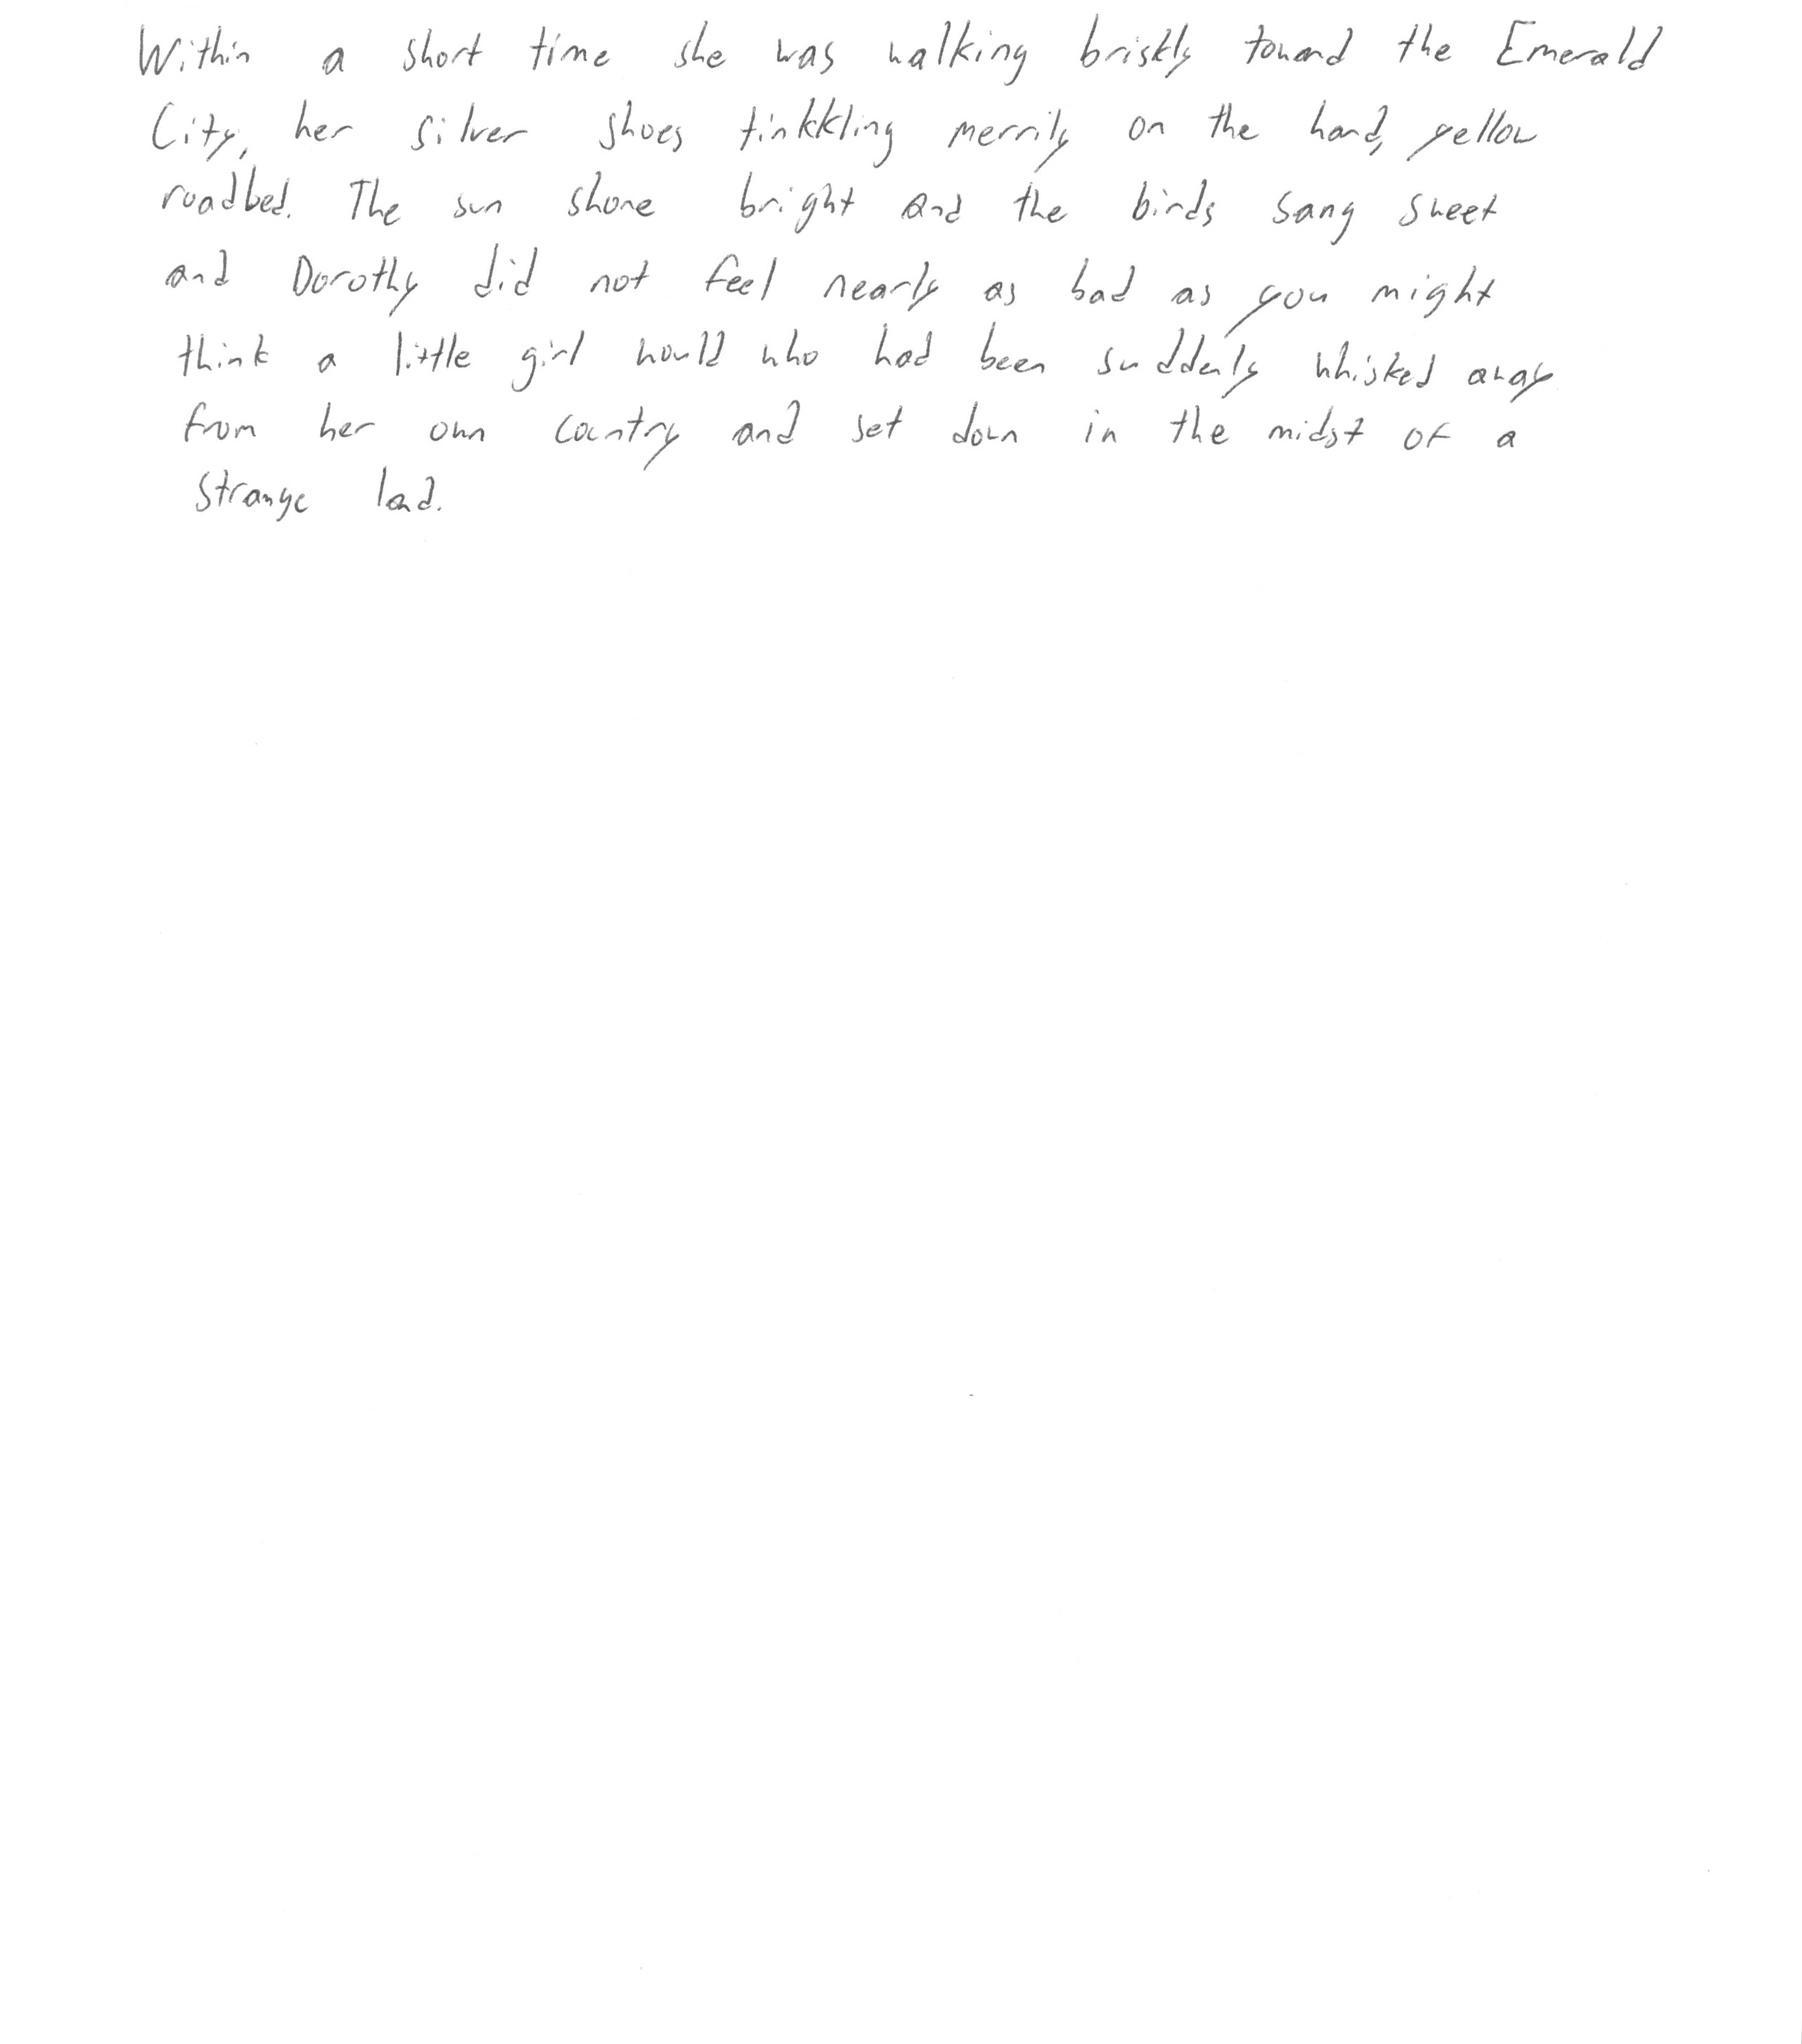 Within a short time she was walking briskly toward the Emerald
City, her silver shoes tinkkling merrily on the hard, yellow
roadbed. The sun shone bright and the birds sang sweet
and Dorothy did not feel nearly as bad as you might
think a little girl would who had been suddenly whisked away
from her own country and set down in the midst of a
strange land.